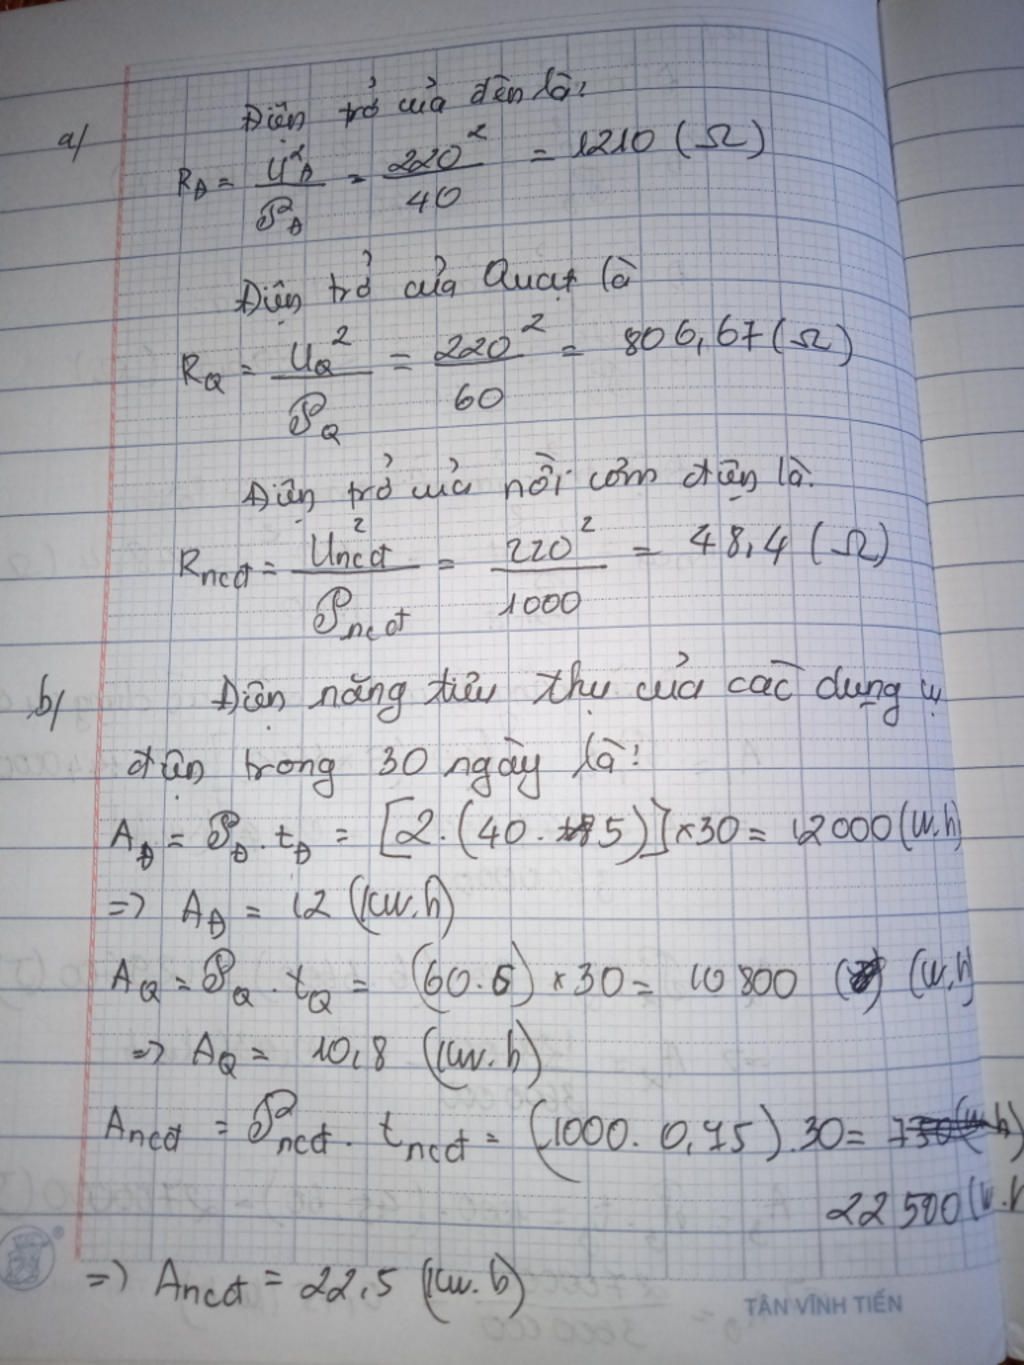 a/ Điện trở của đèn là:
R_Đ = U²_Đ / P_Đ = 220² / 40 = 1210 (Ω)
Điện trở của Quạt là
R_Q = U_Q² / P_Q = 220² / 60 = 806,67 (Ω)
Điện trở của nồi cơm điện là.
R_ncđ = U_ncđ² / P_ncđ = 220² / 1000 = 48,4 (Ω)
b/ Điện năng tiêu thụ của các dụng cụ
điện trong 30 ngày là:
A_Đ = P_Đ . t_Đ = [2.(40. 5)] x 30 = 12000 (W.h)
=> A_Đ = 12 (KW.h)
A_Q = P_Q . t_Q = (60.6) x 30 = 10 800 (W.h)
=> A_Q = 10,8 (KW.h)
A_ncđ = P_ncđ . t_ncđ = (1000. 0,75).30 =
22 500 (W.h
=> A_ncđ = 22,5 (KW.h)
TÂN VĨNH TIẾN